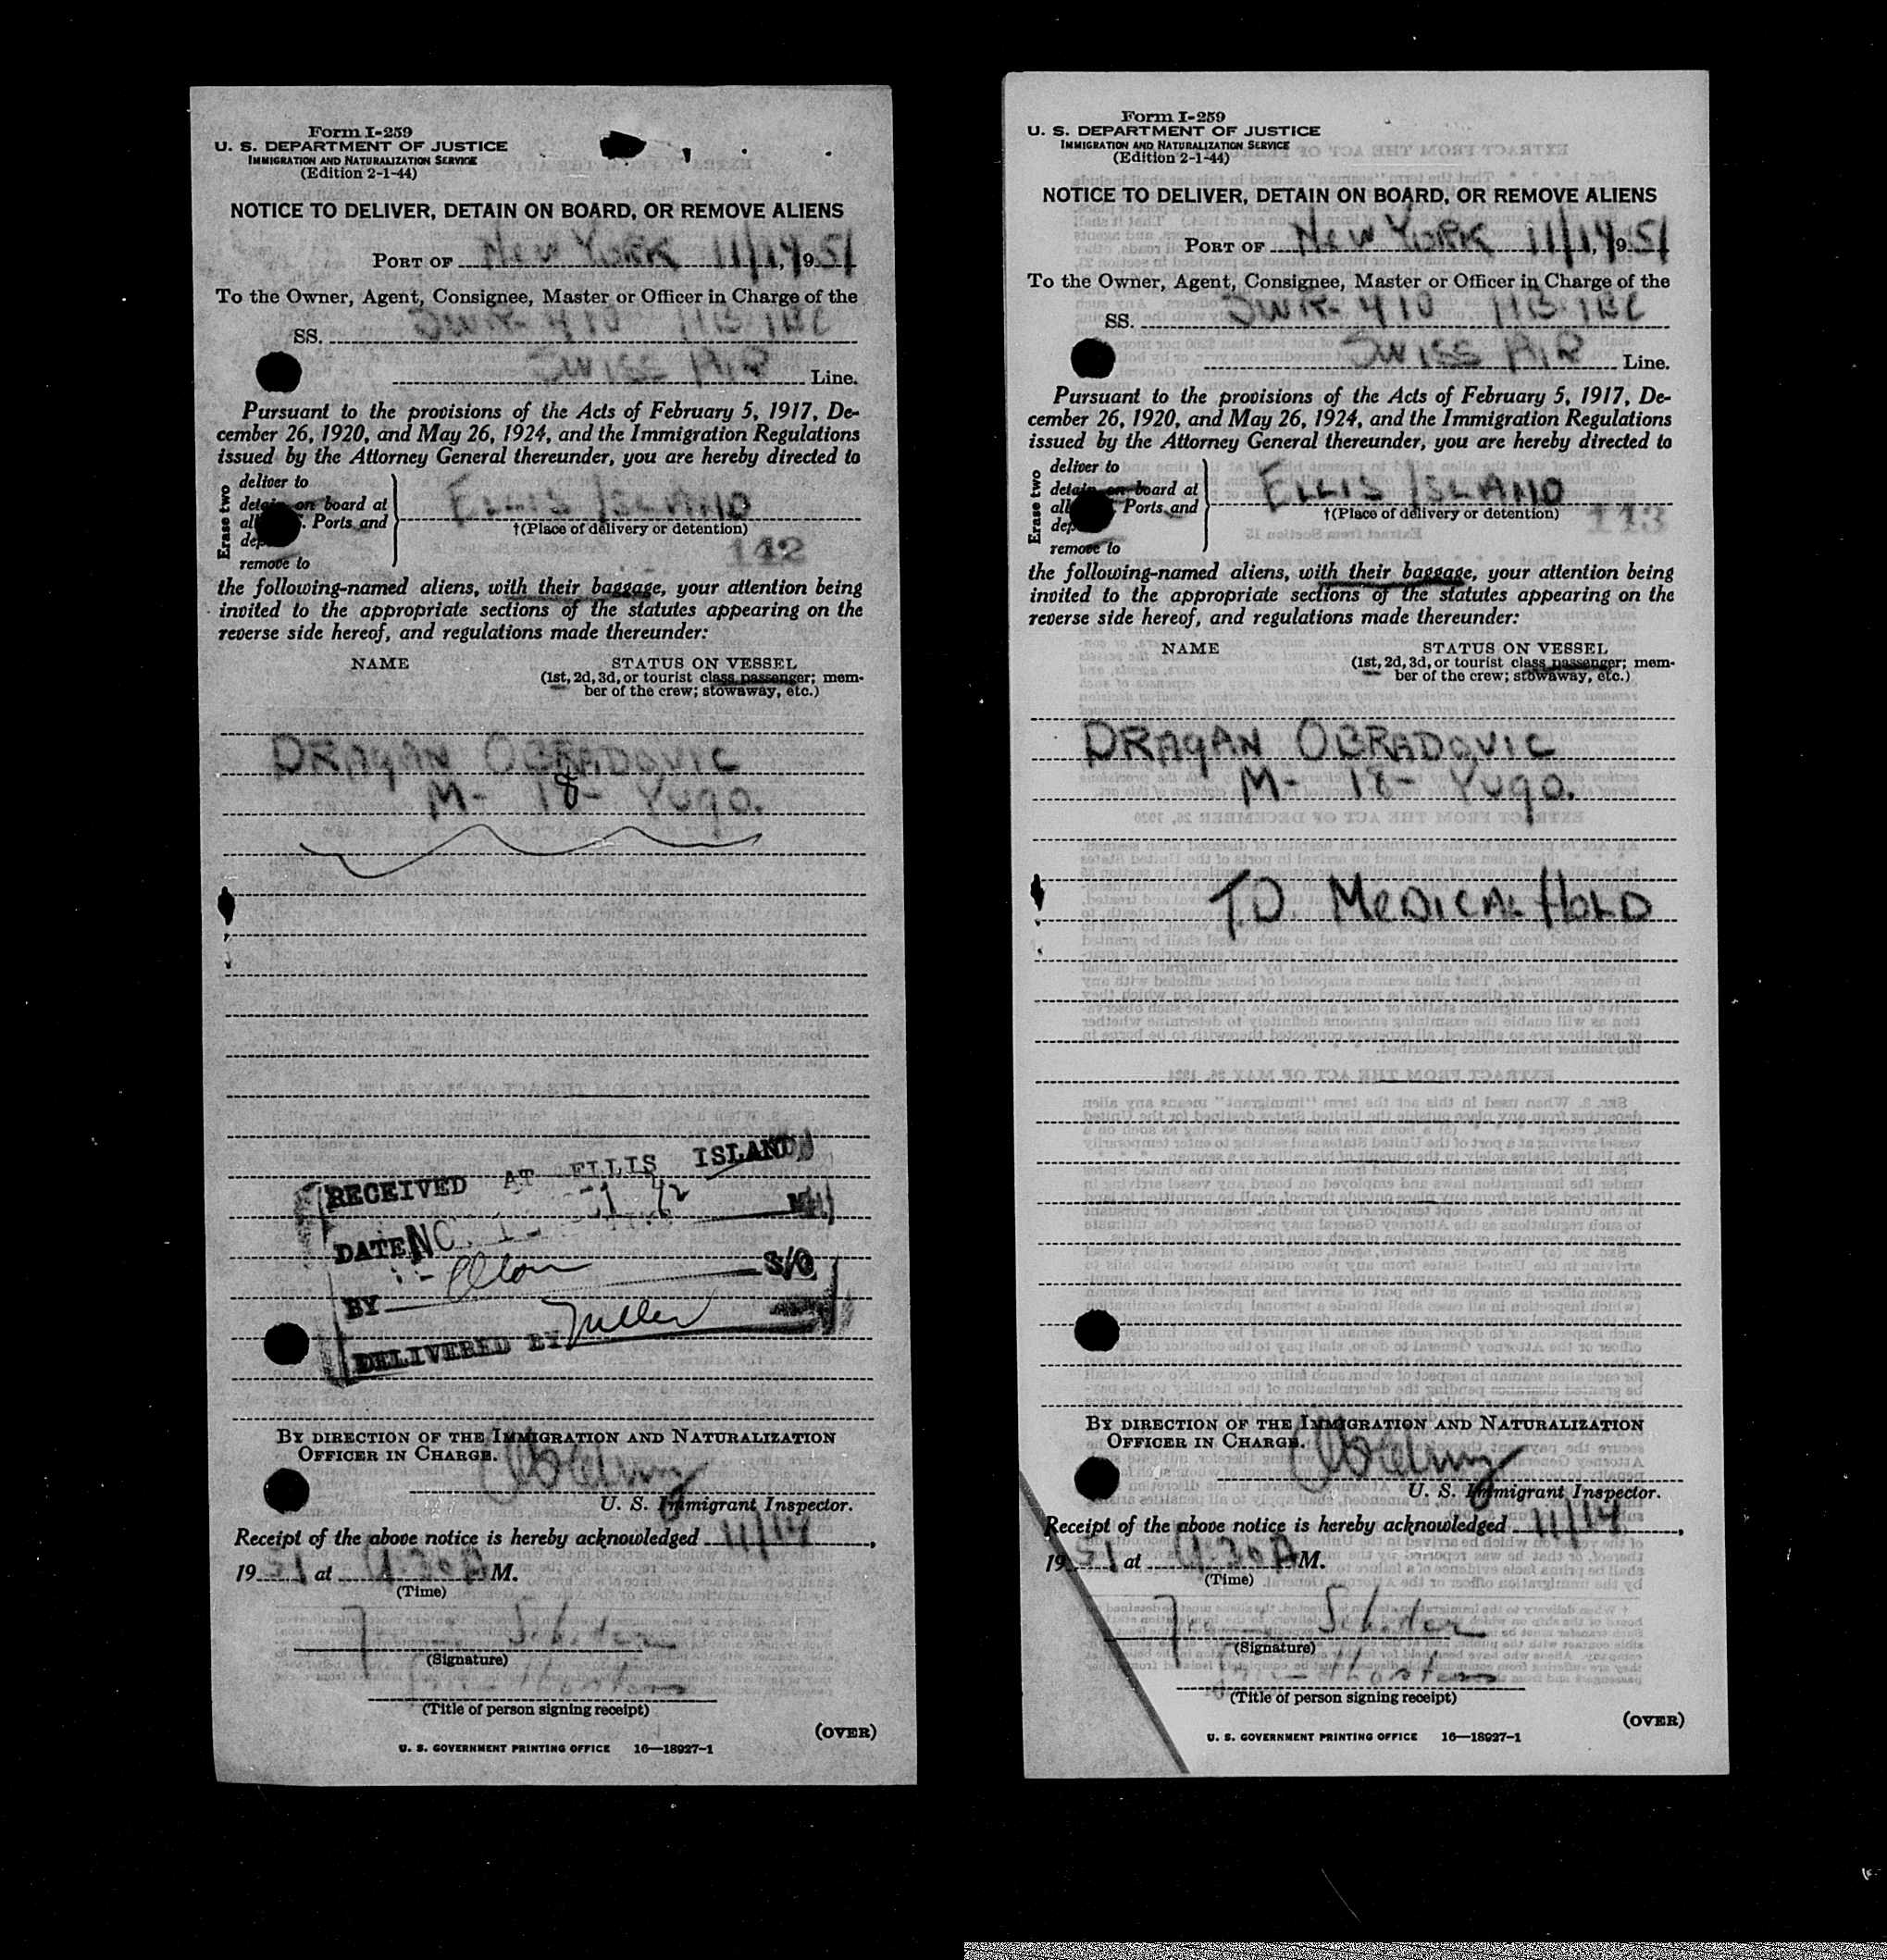 Form I-259
U. S. DEPARTMENT OF JUSTICE
IMMIGRATION AND NATURALIZATION SERVICE
(Edition 2-1-44)
NOTICE TO DELIVER, DETAIN ON BOARD, OR REMOVE ALIENS
PORT OF New York 11/14, 1951
To the Owner, Agent, Consignee, Master or Officer in Charge of the
SS. SWR 410 HB IBC
SWISS AIR Line.
Pursuant to the provisions of the Acts of February 5, 1917, De-
cember 26, 1920, and May 26, 1924, and the Immigration Regulations
issued by the Attorney General thereunder, you are hereby directed to
Erase two
deliver to
detain on board at
Ports and
remove to
ELLIS ISLAND
†(Place of delivery or detention)
142
the following-named aliens, with their baggage, your attention being
invited to the appropriate sections of the statutes appearing on the
reverse side hereof, and regulations made thereunder:
NAME STATUS ON VESSEL
(1st, 2d, 3d, or tourist class passenger; mem-
ber of the crew; stowaway, etc.)
DRAGAN OBRADOVIC
M- 18- Yugo.
RECEIVED AT ELLIS ISLAND
DATE
BY S/O
DELIVERED BY
BY DIRECTION OF THE IMMIGRATION AND NATURALIZATION
OFFICER IN CHARGE.
U. S. Immigrant Inspector.
Receipt of the above notice is hereby acknowledged 11/14,
1951 at A M.
(Time)
(Signature)
(Title of person signing receipt)
(OVER)
U. S. GOVERNMENT PRINTING OFFICE 16—18927-1
Form I-259
U. S. DEPARTMENT OF JUSTICE
IMMIGRATION AND NATURALIZATION SERVICE
(Edition 2-1-44)
NOTICE TO DELIVER, DETAIN ON BOARD, OR REMOVE ALIENS
PORT OF New York 11/14, 1951
To the Owner, Agent, Consignee, Master or Officer in Charge of the
SS. SWR 410 HB IBC
SWISS AIR Line.
Pursuant to the provisions of the Acts of February 5, 1917, De-
cember 26, 1920, and May 26, 1924, and the Immigration Regulations
issued by the Attorney General thereunder, you are hereby directed to
Erase two
deliver to
detain on board at
Ports and
remove to
ELLIS ISLAND
†(Place of delivery or detention)
143
the following-named aliens, with their baggage, your attention being
invited to the appropriate sections of the statutes appearing on the
reverse side hereof, and regulations made thereunder:
NAME STATUS ON VESSEL
(1st, 2d, 3d, or tourist class passenger; mem-
ber of the crew; stowaway, etc.)
DRAGAN OBRADOVIC
M- 18- Yugo.
TO MEDICAL HOLD
BY DIRECTION OF THE IMMIGRATION AND NATURALIZATION
OFFICER IN CHARGE.
U. S. Immigrant Inspector.
Receipt of the above notice is hereby acknowledged 11/14,
1951 at A M.
(Time)
(Signature)
(Title of person signing receipt)
(OVER)
U. S. GOVERNMENT PRINTING OFFICE 16—18927-1